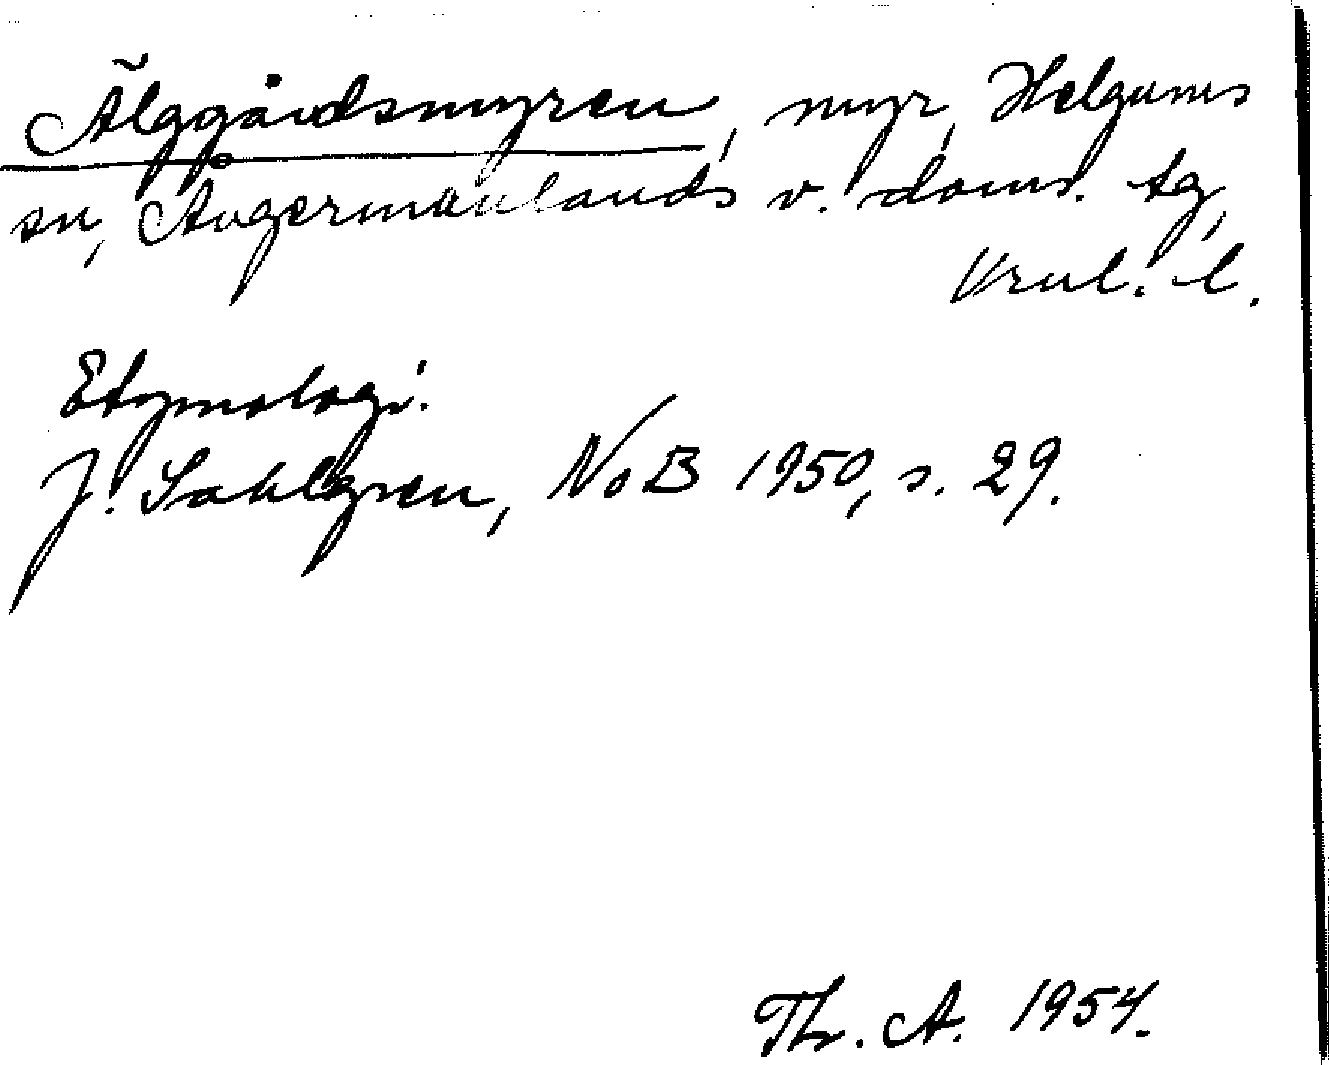 Älggårdsmyren, myr, Helgums
sn, Ångermanlands v. doms. tg,
Vrnl. l.
Etymologi:
J. Sahlgren, NoB 1950, s. 29.
Th. A. 1954.